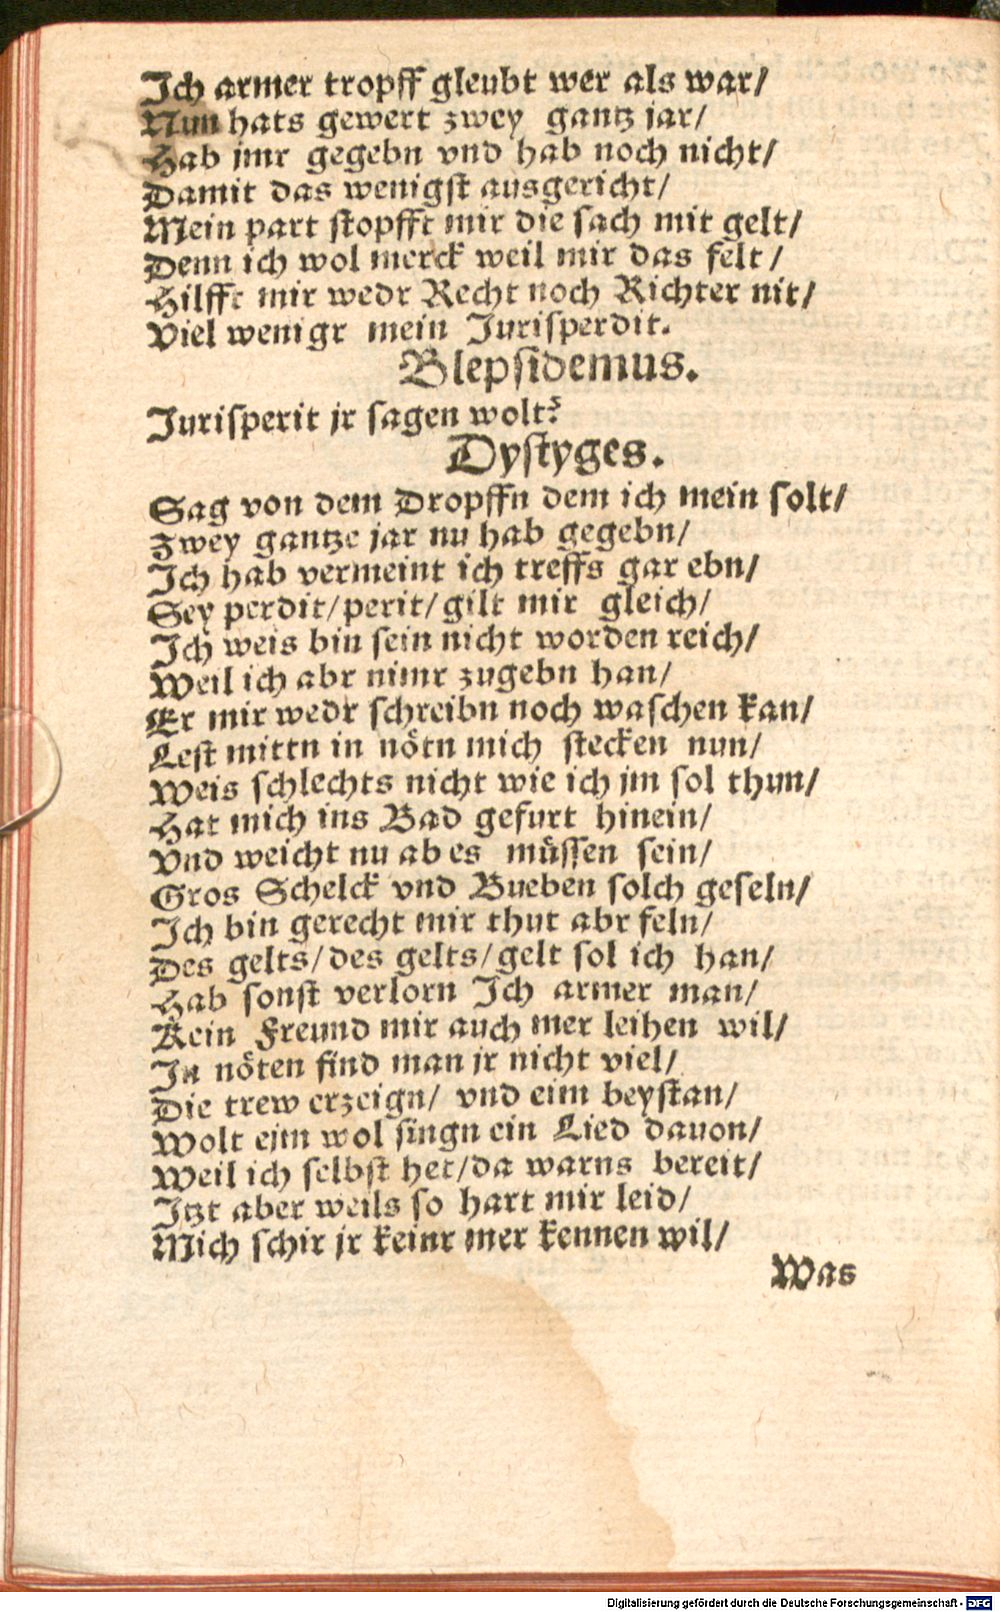 Ich armer tropff gleubt wer als war/
Nun hats gewert zwey gantz jar/
Hab jmr gegebn vnd hab noch nicht/
Damit das wenigst ausgericht/
Mein part stopfft mir die sach mit gelt/
Denn ich wol merck weil mir das felt/
Hilfft mir wedr Recht noch Richter nit/
Viel wenigr mein Jurisperdit.
Blepsidemus.
Jurisperit jr sagen wolt?
Dystyges.
Sag von dem Dropffn dem ich mein solt/
Zwey gantze jar nu hab gegebn/
Ich hab vermeint ich treffs gar ebn/
Sey perdit/perit/gilt mir gleich/
Ich weis bin sein nicht worden reich/
Weil ich abr nimr zugebn han/
Er mir wedr schreibn noch waschen kan/
Lest mittn in nötn mich stecken nun/
Weis schlechts nicht wie ich jm sol thun/
Hat mich ins Bad gefurt hinein/
Vnd weicht nu ab es müssen sein/
Gros Schelck vnd Bueben solch geseln/
Ich bin gerecht mir thut abr feln/
Des gelts/des gelts/gelt sol ich han/
Hab sonst verlorn Ich armer man/
Kein Freund mir auch mer leihen wil/
In nöten find man jr nicht viel/
Die trew erzeign/ vnd eim beystan/
Wolt ejm wol singn ein Lied dauon/
Weil ich selbst het/da warns bereit/
Itzt aber weils so hart mir leid/
Mich schir jr keinr mer kennen wil/
Was
Digitalisierung gefördert durch die Deutsche Forschungsgemeinschaft - DFG